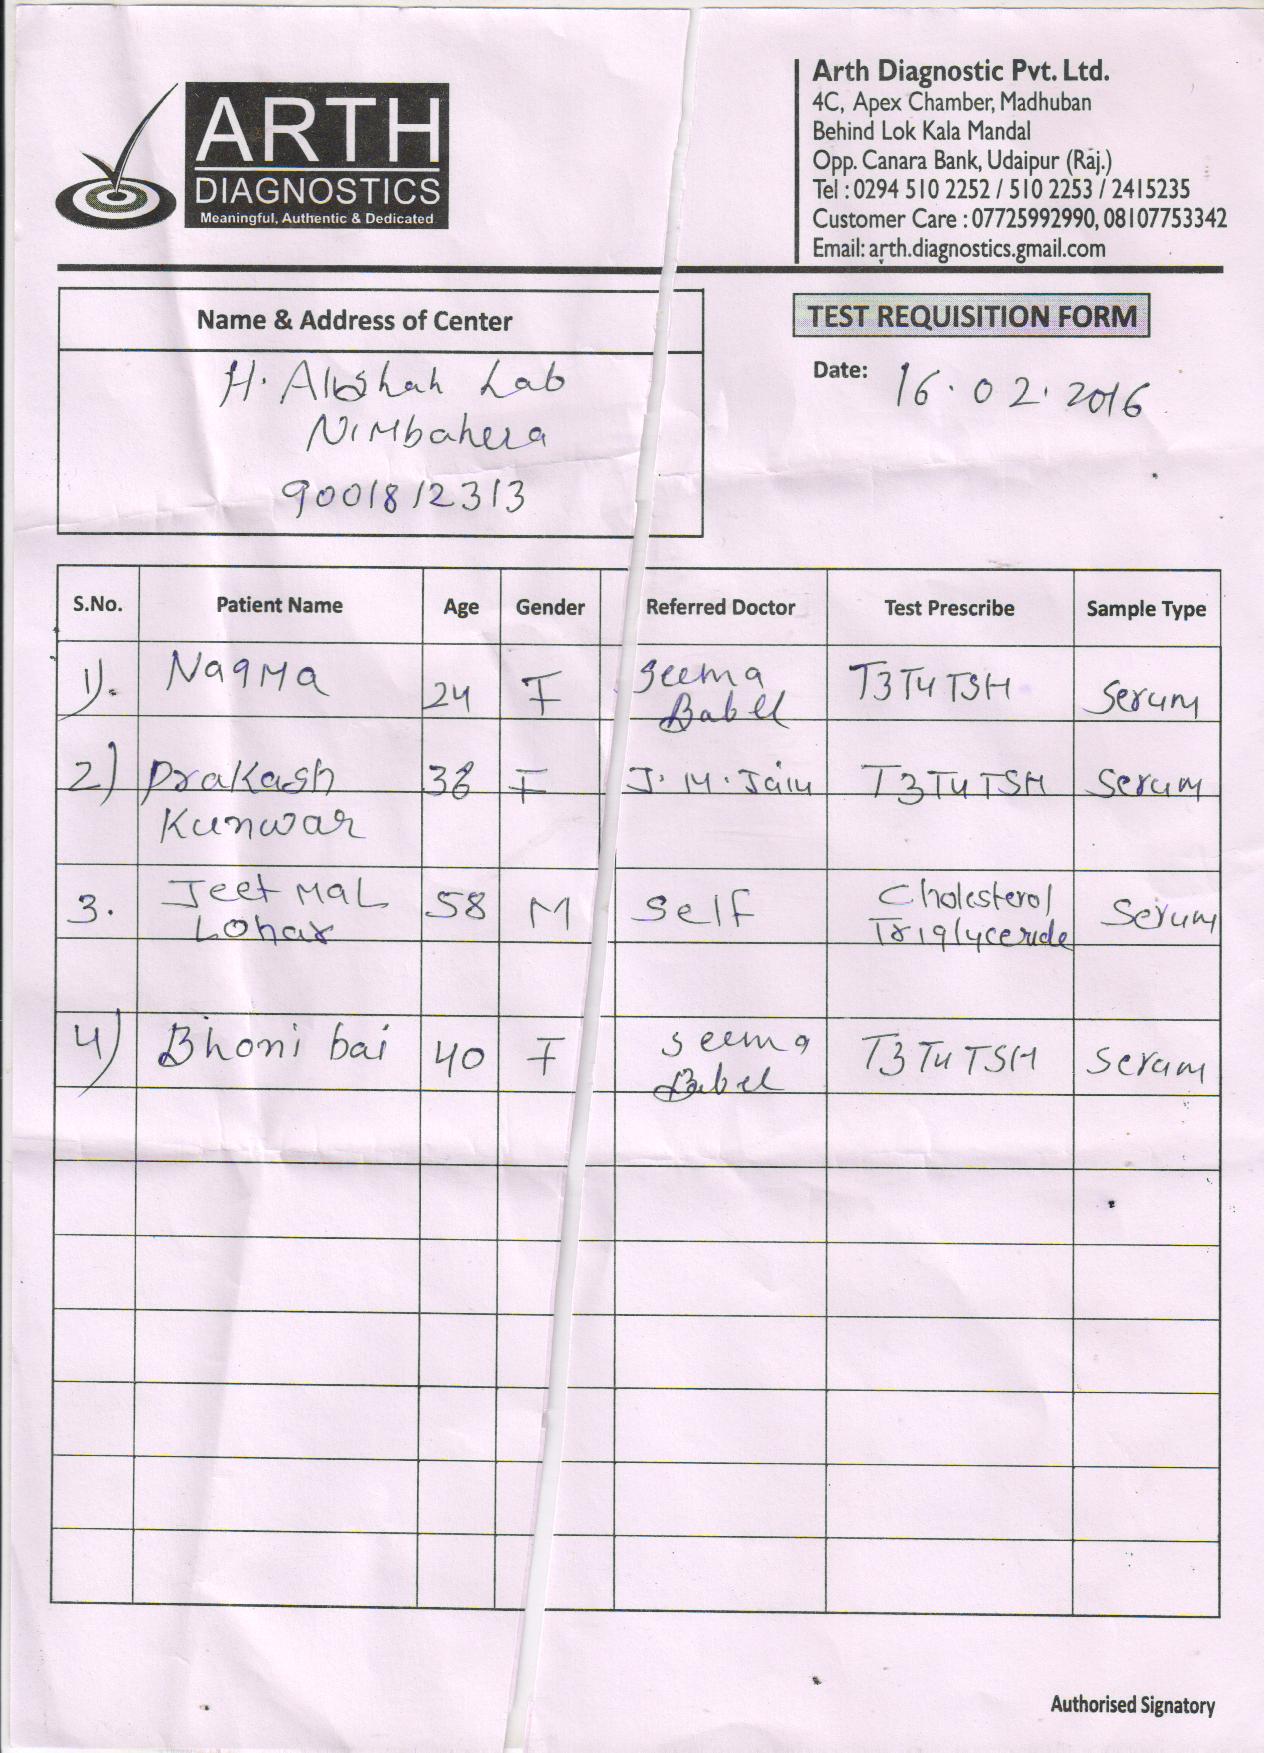 ARTH
DIAGNOSTICS
Meaningful, Authentic & Dedicated
Arth Diagnostic Pvt. Ltd.
4C, Apex Chamber, Madhuban
Behind Lok Kala Mandal
Opp. Canara Bank, Udaipur (Raj.)
Tel : 0294 510 2252 / 510 2253 / 2415235
Customer Care : 07725992990, 08107753342
Email: arth.diagnostics.gmail.com
Name & Address of Center
H. Lab
Nimbahera
9001812313
TEST REQUISITION FORM
Date: 16.02.2016
S.No. Patient Name Age Gender Referred Doctor Test Prescribe Sample Type
1). Nagma 24 F Seema Babel T3 T4 TSH Serum
2) Prakash Kunwar 38 F J.M. Jain T3 T4 TSH Serum
3. Jeet Mal Lohar 58 M Self Cholesterol Triglyceride Serum
4) Bhoni bai 40 F Seema Babel T3 T4 TSH Serum
Authorised Signatory